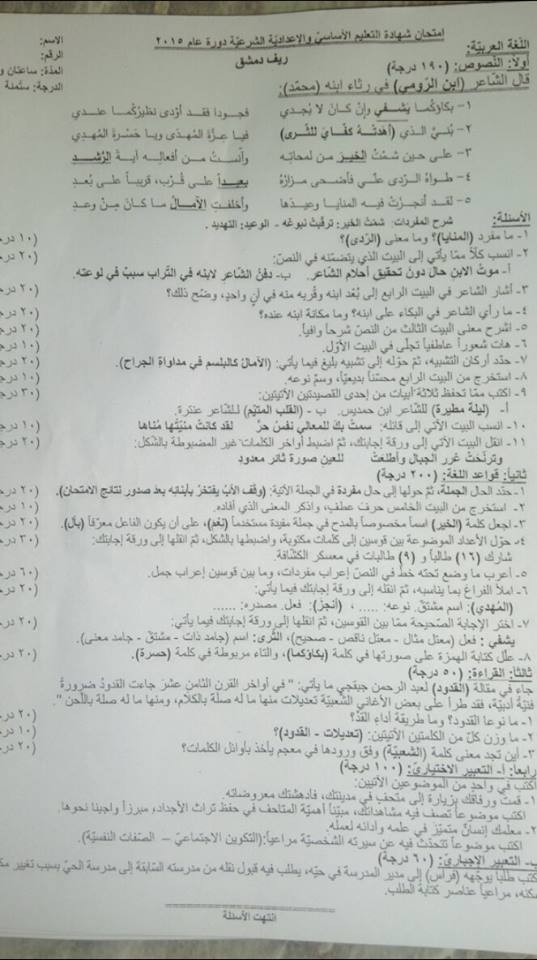 امتحان شهادة التعليم الأساسيّ والإعداديّة الشرعيّة دورة عام ٢٠١٥
ريف دمشق
الاسم:
الرقم:
المدّة: ساعتان و
الدرجة: ستّمئة
اللّغة العربيّة:
أولاً: النّصوص: (١٩٠ درجة)
قال الشّاعر (ابن الرّومي) في رثاء ابنه (محمّد):
١- بكاؤكُما يَشفي وإنْ كانَ لا يُجدي فجودا فقد أودى نظيرُكما عندي
٢- بُنيَّ الذي (أهدَتْهُ كفّايَ للثّرى) فيا عِزّةَ المُهدَى ويا حَسرةَ المُهدِي
٣- على حينِ شمْتُ الخيرَ من لمحاتِهِ وآنستُ من أفعالِه آيةَ الرُّشدِ
٤- طواهُ الرّدى عنّي فأضحى مزارُهُ بعيداً على قُربٍ، قريباً على بُعدِ
٥- لقد أنجزَتْ فيه المنايا وعيدَها وأخلفَتِ الآمالُ ما كانَ مِنْ وعدِ
شرح المفردات: شمْتُ الخير: ترقّبتُ نبوغه - الوعيد: التهديد .
الأسئلة:
١- ما مفرد (المنايا)؟ وما معنى (الرّدى)؟ (١٠ درج
٢- انسب كلّاً ممّا يأتي إلى البيت الذي يتضمّنه في النصّ: (٢٠ در
أ- موتُ الابنِ حال دون تحقيق أحلام الشّاعر. ب- دفنُ الشّاعرِ لابنه في التّراب سببٌ في لوعته.
٣- أشار الشاعر في البيت الرابع إلى بُعد ابنه وقُربه منه في آنٍ واحدٍ، وضّح ذلك؟ (٢٠ در
٤- ما رأي الشاعر في البكاء على ابنه؟ وما مكانة ابنه عنده؟ (٢٠ در
٥- اشرح معنى البيت الثالث من النصّ شرحاً وافياً. (٢٠ در
٦- هات شعوراً عاطفياً تجلّى في البيت الأوّل. (١٠ در
٧- حدّد أركان التشبيه، ثمّ حوّله إلى تشبيه بليغ فيما يأتي: (الآمالُ كالبلسم في مداواةِ الجراح). (٢٠ در
٨- استخرج من البيت الرابع محسّناً بديعيّاً، وسمّ نوعه. (١٠ در
٩- اكتب ممّا تحفظ ثلاثة أبيات من إحدى القصيدتين الآتيتين: (٣٠ در
أ- (ليلة مطيرة) للشّاعر ابن حمديس. ب - (القلب المتيّم) للشّاعر عنترة.
١٠- انسب البيت الآتي إلى قائله: سمتْ بكَ للمعالي نفسُ حرٍّ لقد كانتْ منيّتُها مُناها (١٠ در
١١- انقل البيت الآتي إلى ورقة إجابتك، ثمّ اضبط أواخر الكلمات غير المضبوطة بالشّكل: (٢٠ در
وترنّحَتْ غُرر الجبال وأطلعَتْ للعين صورة ثائر معدودِ
ثانياً: قواعد اللغة: (٢٠٠ درجة)
١- حدّد الحال الجملة، ثمّ حولها إلى حال مفردة في الجملة الآتية: (وقف الأبُ يفتخرُ بأبنائه بعد صدور نتائج الامتحان). (٢٠ د
٢- استخرج من البيت الخامس حرف عطف، واذكر المعنى الذي أفاده. (١٠ د
٣- اجعل كلمة (الخير) اسماً مخصوصاً بالمدح في جملة مفيدة مستخدماً (نِعْمَ)، على أن يكون الفاعل معرّفاً (بأل). (٢٠ د
٤- حوّل الأعداد الموضوعة بين قوسين إلى كلمات مكتوبة، واضبطها بالشّكل، ثمّ انقلها إلى ورقة إجابتك: (٣٠ د
شارك (١٦) طالباً و (٩) طالبات في معسكر الكشّافة.
٥- أعرب ما وضع تحته خطّ في النصّ إعراب مفردات، وما بين قوسين إعراب جمل. (٦٠ د
٦- املأ الفراغ بما يناسبه، ثمّ انقله إلى ورقة إجابتك فيما يأتي: (٢٠
(المُهدِي): اسم مشتقّ. نوعه: ..... ، (أنجزَ): فعل. مصدره: ......
٧- اختر الإجابة الصّحيحة ممّا بين القوسين، ثمّ انقلها إلى ورقة إجابتك فيما يأتي: (٢٠
يشفي : فعل (معتل مثال - معتل ناقص - صحيح)، الثرى: اسم (جامد ذات - مشتقّ - جامد معنى).
٨- علّل كتابة الهمزة على صورتها في كلمة (بكاؤكما)، والتاء مربوطة في كلمة (حسرة). (٢٠
ثالثاً: القراءة: (٥٠ درجة)
جاء في مقالة (القدود) لعبد الرحمن جبقجي ما يأتي: " في أواخر القرن الثامن عشر جاءت القدودُ ضرورةً
فنيّة أدبيّة، فقد طرأ على بعض الأغاني الشّعبيّة تعديلات منها ما له صلة بالكلام، ومنها ما له صلة باللّحن ".
١- ما نوعا القدود؟ وما طريقة أداء القدّ؟ (٢٠
٢- ما وزن كلّ من الكلمتين الآتيتين: (تعديلات - القدود)؟ (١٠
٣- أين تجد معنى كلمة (الشّعبيّة) وفق ورودها في معجم يأخذ بأوائل الكلمات؟ (٢٠
رابعاً: أ- التعبير الاختياريّ: (١٠٠ درجة)
اكتب في واحدٍ من الموضوعين الآتيين:
١- قمتَ ورفاقك بزيارة إلى متحفٍ في مدينتك، فأدهشتك معروضاته.
اكتب موضوعاً تصف فيه مشاهداتك، مبيّناً أهميّة المتاحف في حفظ تراث الأجداد، مبرزاً واجبنا نحوها.
٢- معلّمك إنسانٌ متميّز في علمه وأدائه لعمله.
اكتب موضوعاً تتحدّث فيه عن سيرته الشّخصيّة مراعياً:(التكوين الاجتماعيّ – الصّفات النفسيّة).
ب- التعبير الإجباريّ: (٦٠ درجة)
كتب طلباً يوجّهه (فراس) إلى مدير المدرسة في حيّه، يطلب فيه قبول نقله من مدرسته السّابقة إلى مدرسة الحيّ بسبب تغيير مك
كنه، مراعياً عناصر كتابة الطلب.
انتهت الأسئلة